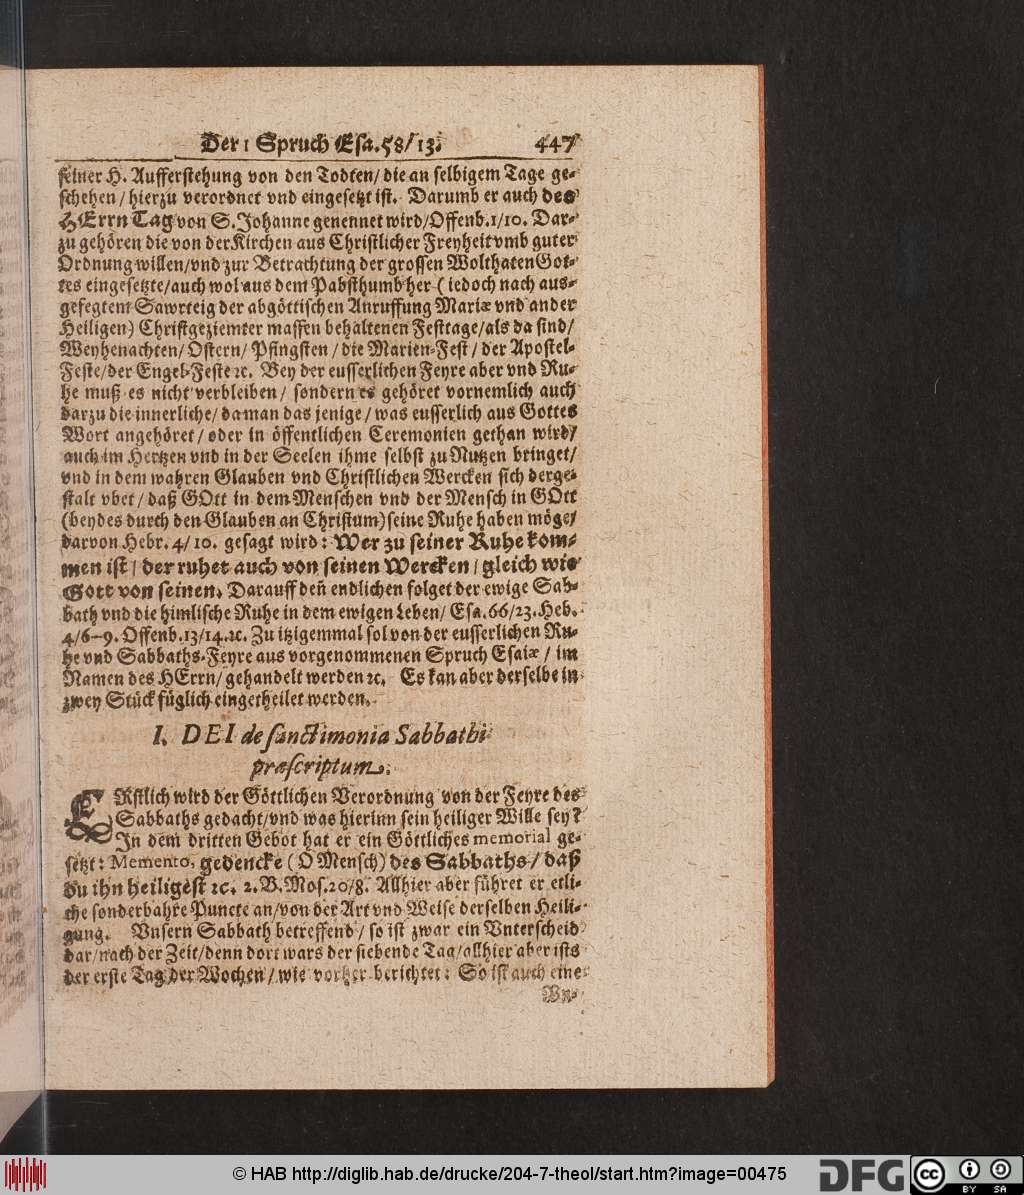 Der 1 Spruch Esa. 58/13. 447
seiner H. Aufferstehung von den Todten/ die an selbigem Tage ge-
schehen/ hierzu verordnet vnd eingesetzt ist. Darumb er auch des
HErrn Tag von S. Johanne genennet wird/ Offenb. 1/10. Dar-
zu gehören die von der Kirchen aus Christlicher Freyheit vmb guter
Ordnung willen/ vnd zur Betrachtung der grossen Wolthaten Got-
tes eingesetzte/ auch wol aus dem Pabsthumb her ( iedoch nach aus-
gefegtem Sawrteig der abgöttischen Anruffung Mariæ vnd ander
Heiligen) Christgeziemter massen behaltenen Festtage/ als da sind/
Weyhenachten/ Ostern/ Pfingsten / die Marien-Fest/ der Apostel-
Feste/ der Engel-Feste ꝛc. Bey der eusserlichen Feyre aber vnd Ru-
he muß es nicht verbleiben/ sondern es gehöret vornemlich auch
darzu die innerliche/ da man das jenige/ was eusserlich aus Gottes
Wort angehöret/ oder in öffentlichen Ceremonien gethan wird/
auch im Hertzen vnd in der Seelen ihme selbst zu Nutzen bringet/
vnd in dem wahren Glauben vnd Christlichen Wercken sich derge-
stalt vbet/ daß GOtt in dem Menschen vnd der Mensch in GOtt
(beydes durch den Glauben an Christum) seine Ruhe haben möge/
darvon Hebr. 4/10. gesagt wird: Wer zu seiner Ruhe kom-
men ist/ der ruhet auch von seinen Wercken/ gleich wie
Gott von seinen. Darauff deñ endlichen folget der ewige Sab-
bath vnd die himlische Ruhe in dem ewigen Leben/ Esa. 66/23. Heb.
4/6-9. Offenb. 13/14. ꝛc. Zu itzigemmal sol von der eusserlichen Ru-
he vnd Sabbaths-Feyre aus vorgenommenen Spruch Esaiæ / im
Namen des HErrn/ gehandelt werden ꝛc. Es kan aber derselbe in
zwey Stück füglich eingetheilet werden.
I. DEI de sanctimonia Sabbathi
præscriptum.
ERstlich wird der Göttlichen Verordnung von der Feyre des
Sabbaths gedacht/ vnd was hierinn sein heiliger Wille sey?
In dem dritten Gebot hat er ein Göttliches memorial ge-
setzt: Memento, gedencke ( O Mensch) des Sabbaths/ daß
du ihn heiligest ꝛc. 2. B. Mos. 20/8. Allhier aber führet er etli-
che sonderbahre Puncte an/ von der Art vnd Weise derselben Heili-
gung. Vnsern Sabbath betreffend/ so ist zwar ein Vnterscheid
dar/ nach der Zeit/ denn dort wars der siebende Tag/ allhier aber ists
der erste Tag der Wochen/ wie vorher berichtet: So ist auch eine
Vn-
© HAB http://diglib.hab.de/drucke/204-7-theol/start.htm?image=00475
DFG
cc
BY SA